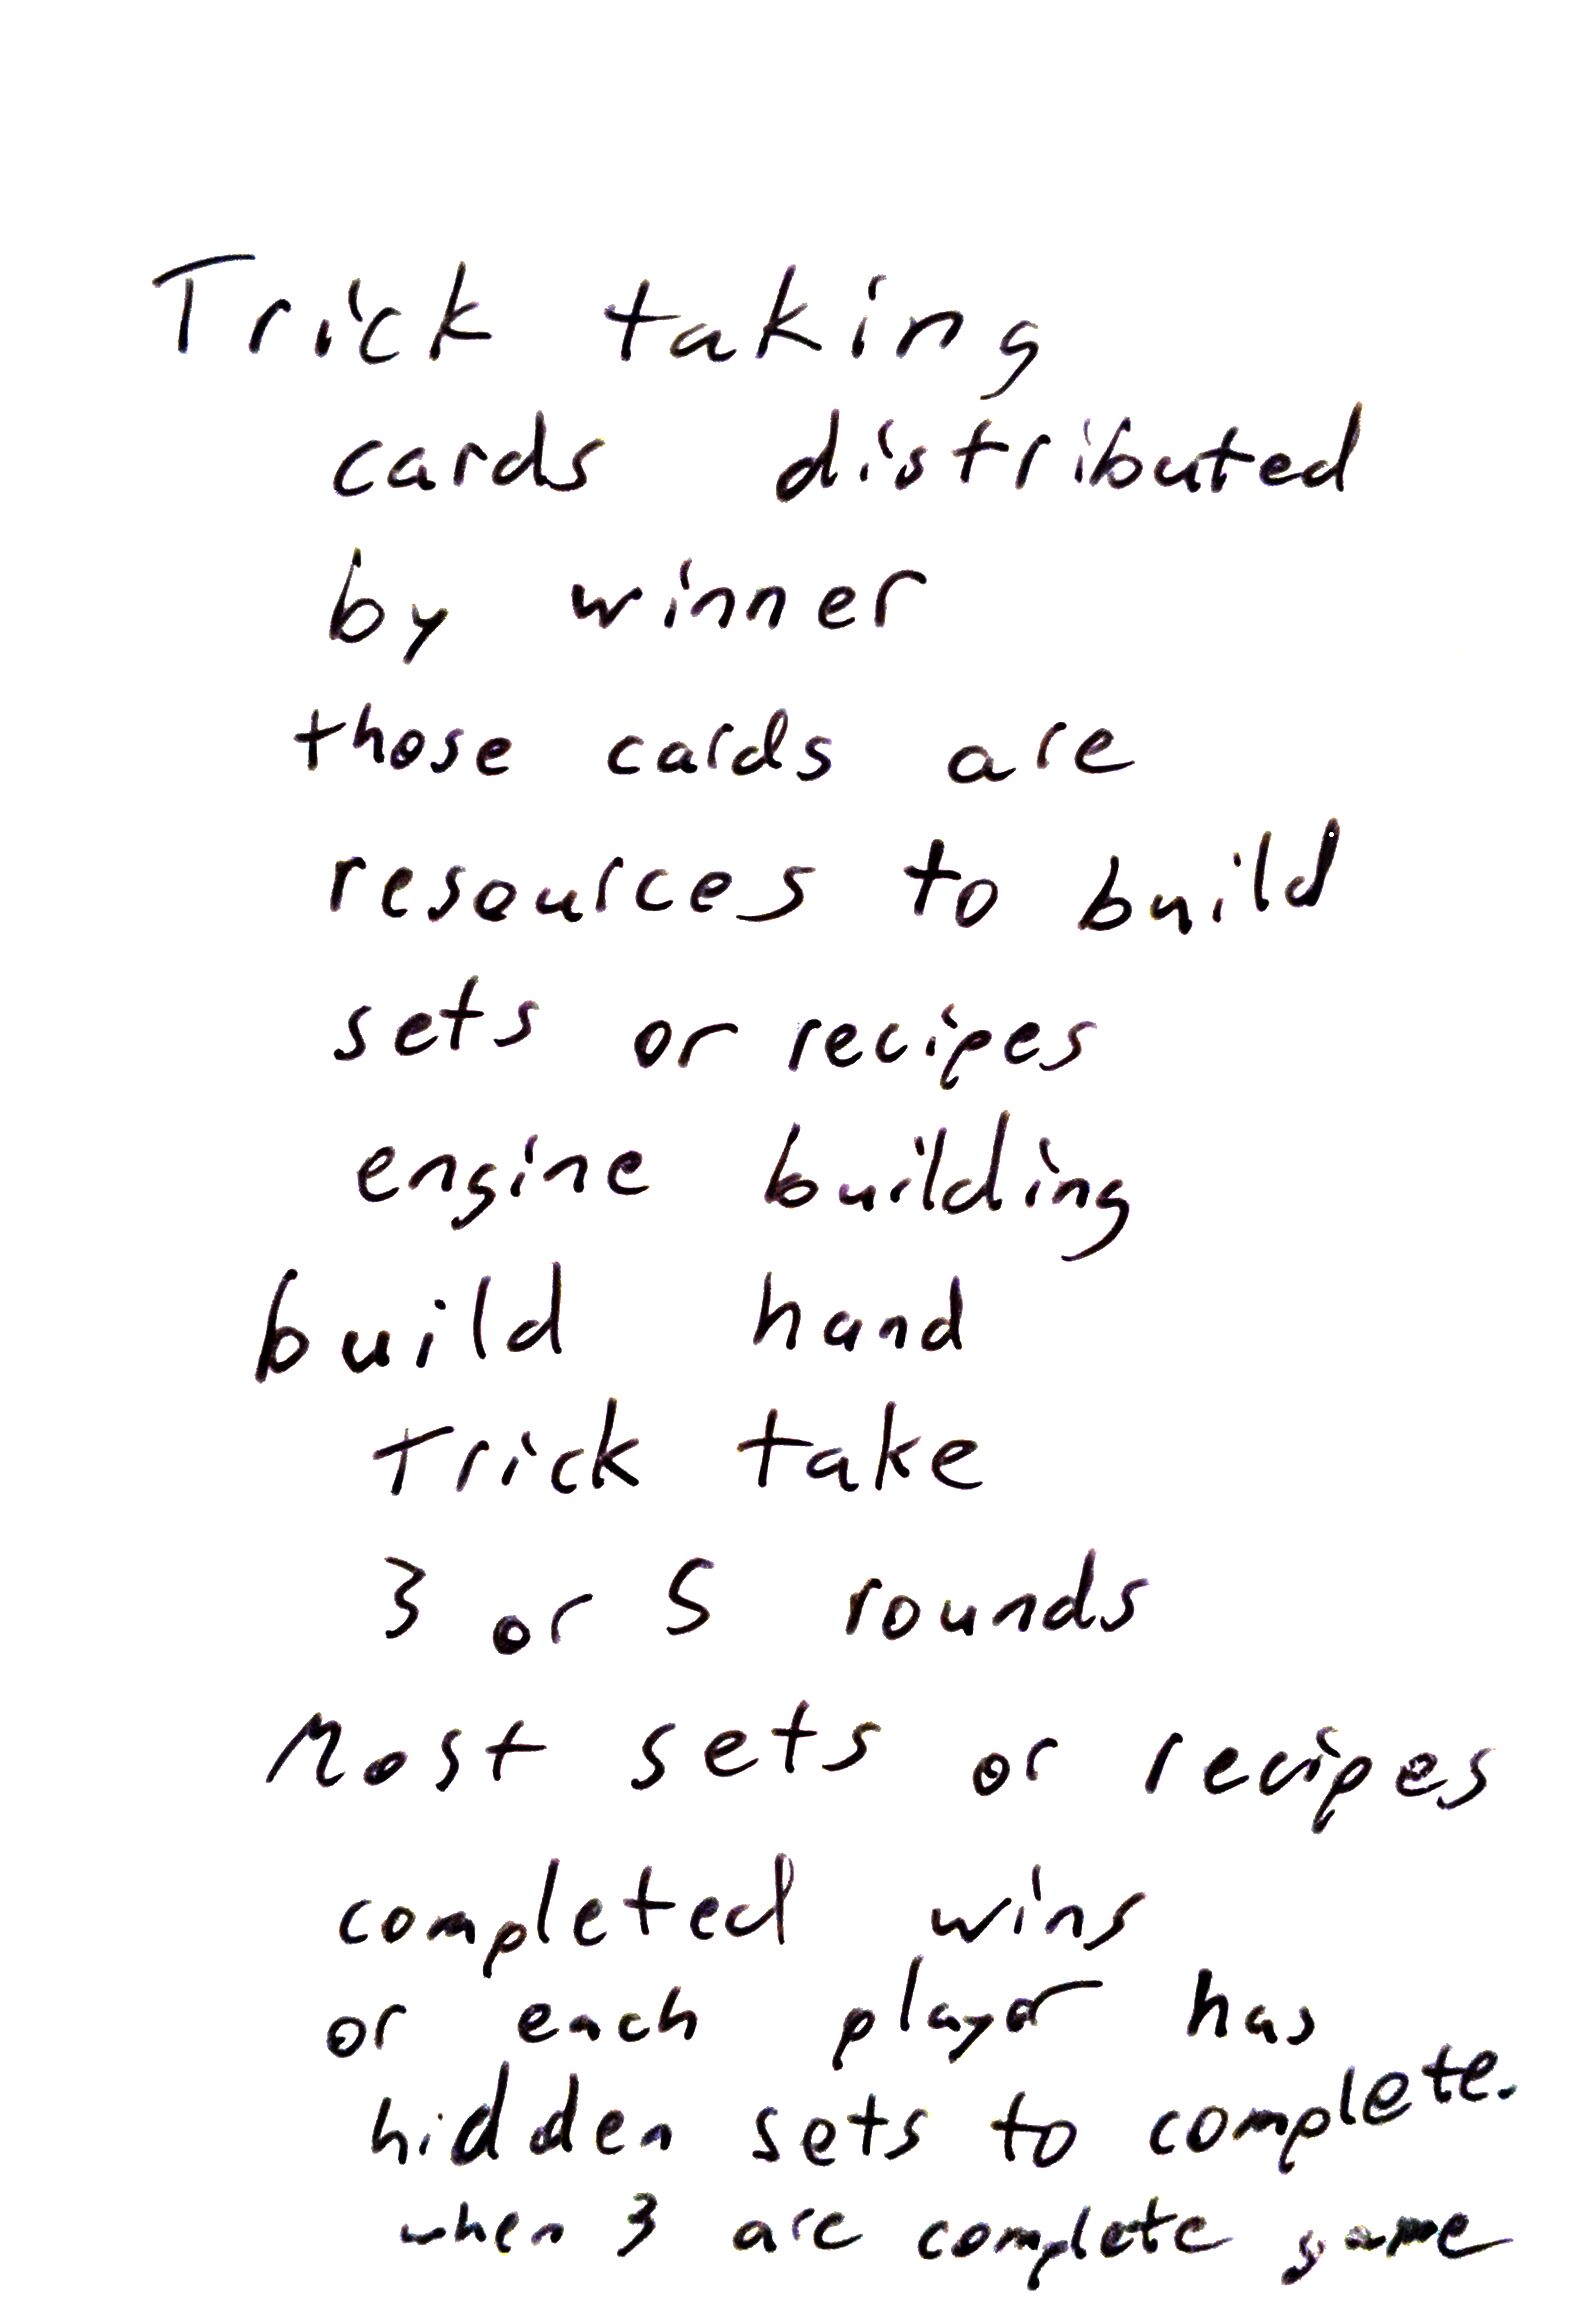 Trick taking
cards distributed
by winner
those cards are
resources to build
sets or recipes
engine building
build hand
Trick take
3 or 5 rounds
Most sets or recipes
completed wins
or each player has
hidden sets to complete.
when 3 are complete game